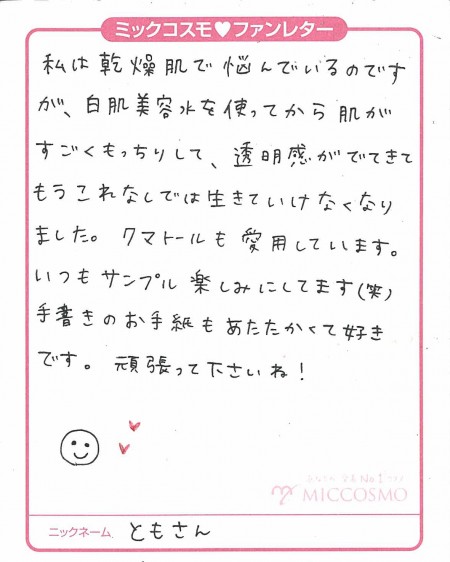 ミックコスモ♥ファンレター
私は乾燥肌で悩んでいるのです
が、白肌美容水を使ってから肌が
すごくもっちりして、透明感がでてきて
もうこれなしでは生きていけなくなり
ました。クマトールも愛用しています。
いつもサンプル楽しみにしてます(笑)
手書きのお手紙もあたたかくて好き
です。頑張って下さいね!
MICCOSMO
ニックネーム. ともさん